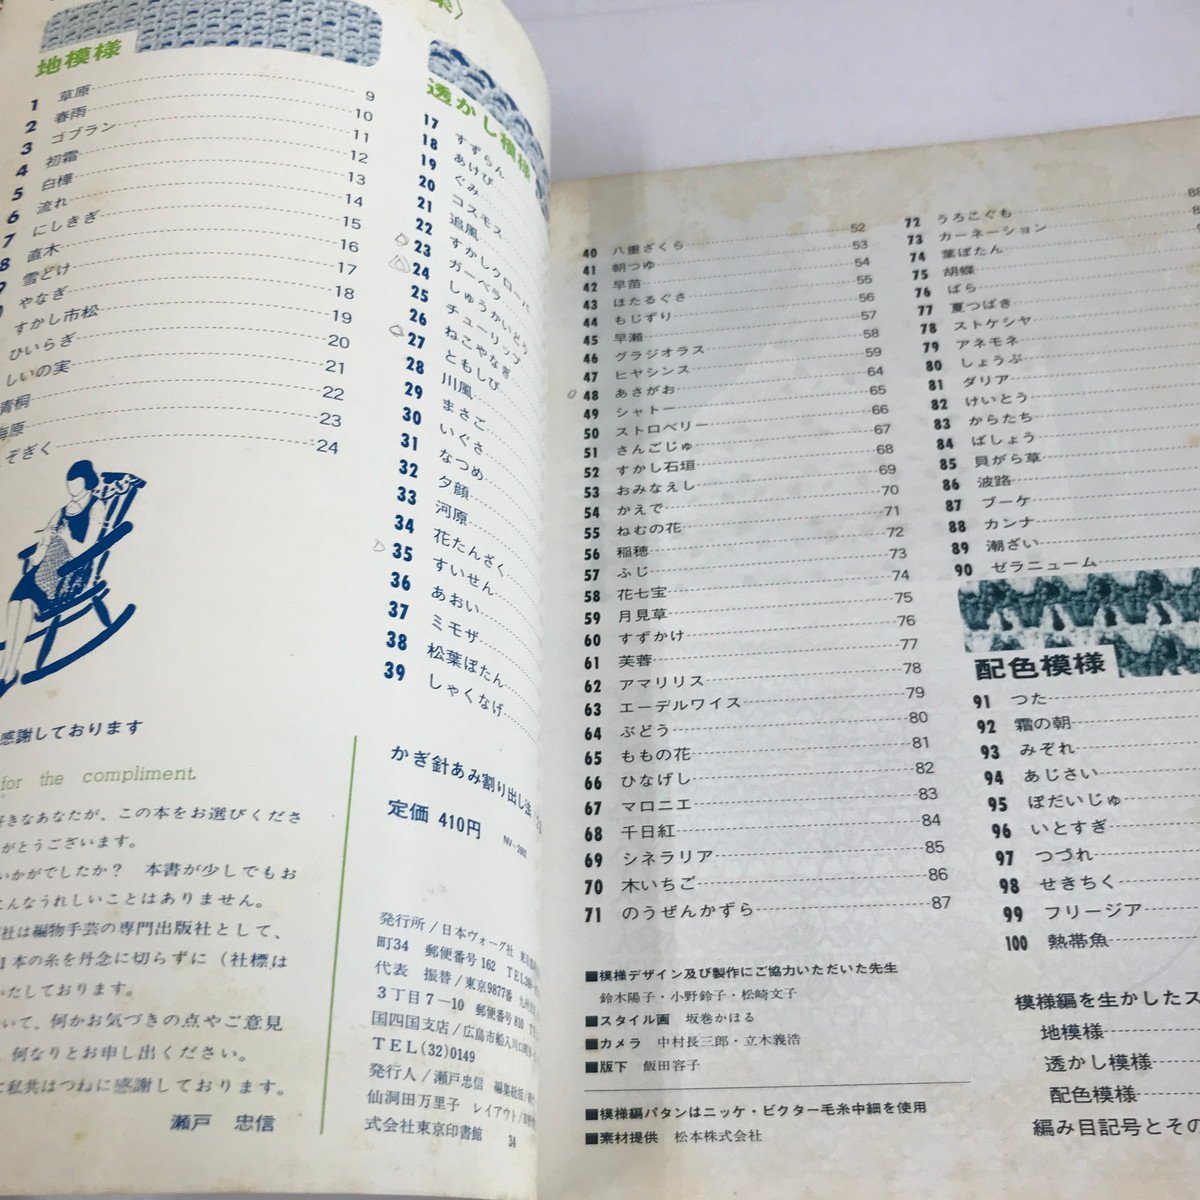 地模様
1 草原 9
2 春雨 10
3 ゴブラン 11
4 初霜 12
5 白樺 13
6 流れ 14
7 にしきぎ 15
8 直木 16
9 雪どけ 17
やなぎ 18
すかし市松 19
ひいらぎ 20
しいの実 21
青桐 22
海原 23
ぞぎく 24
感謝しております
for the compliment.
好きなあなたが、この本をお選びくださ
がとうございます。
いかがでしたか? 本書が少しでもお
こんなうれしいことはありません。
社は編物手芸の専門出版社として、
1本の糸を丹念に切らずに (社標は
いたしております。
いて、何かお気づきの点やご意見
、何なりとお申し出ください。
に私共はつねに感謝しております。
瀬戸 忠信
透かし模様
17 すずらん
18 あけび
19 ぐみ
20 コスモス
21 追風
22 すかしクローバ
23 ガーベラ
24 しゅうかいどう
25 チューリップ
26 ねこやなぎ
27 ともしび
28 川風
29 まさご
30 いぐさ
31 なつめ
32 夕顔
33 河原
34 花たんざく
35 すいせん
36 あおい
37 ミモザ
38 松葉ぼたん
39 しゃくなげ
かぎ針あみ割り出し法
定価 410円
発行所/日本ヴォーグ社
町34 郵便番号162 TEL
代表 振替/東京9877番
3丁目7-10 郵便番号810
国四国支店/広島市船入川口町
TEL(32)0149
発行人/瀬戸忠信
仙洞田万里子 レイアウト/
式会社東京印書館 34
40 八重ざくら 52
41 朝つゆ 53
42 早苗 54
43 ほたるぐさ 55
44 もじずり 56
45 早瀬 57
46 グラジオラス 58
47 ヒヤシンス 59
48 あさがお 64
49 シャトー 65
50 ストロベリー 66
51 さんごじゅ 67
52 すかし石垣 68
53 おみなえし 69
54 かえで 70
55 ねむの花 71
56 稲穂 72
57 ふじ 73
58 花七宝 74
59 月見草 75
60 すずかけ 76
61 芙蓉 77
62 アマリリス 78
63 エーデルワイス 79
64 ぶどう 80
65 ももの花 81
66 ひなげし 82
67 マロニエ 83
68 千日紅 84
69 シネラリア 85
70 木いちご 86
71 のうぜんかずら 87
■模様デザイン及び製作にご協力いただいた先生
鈴木陽子・小野鈴子・松崎文子
■スタイル画 坂巻かほる
■カメラ 中村長三郎・立木義浩
■版下 飯田容子
■模様編パタンはニッケ・ビクター毛糸中細を使用
■素材提供 松本株式会社
72 うろこぐも
73 カーネーション
74 葉ぼたん
75 胡蝶
76 ばら
77 夏つばき
78 ストケシヤ
79 アネモネ
80 しょうぶ
81 ダリア
82 けいとう
83 からたち
84 ばしょう
85 貝がら草
86 波路
87 ブーケ
88 カンナ
89 潮ざい
90 ゼラニューム
配色模様
91 つた
92 霜の朝
93 みぞれ
94 あじさい
95 ぼだいじゅ
96 いとすぎ
97 つづれ
98 せきちく
99 フリージア
100 熱帯魚
模様編を生かしたス
地模様
透かし模様
配色模様
編み目記号とその